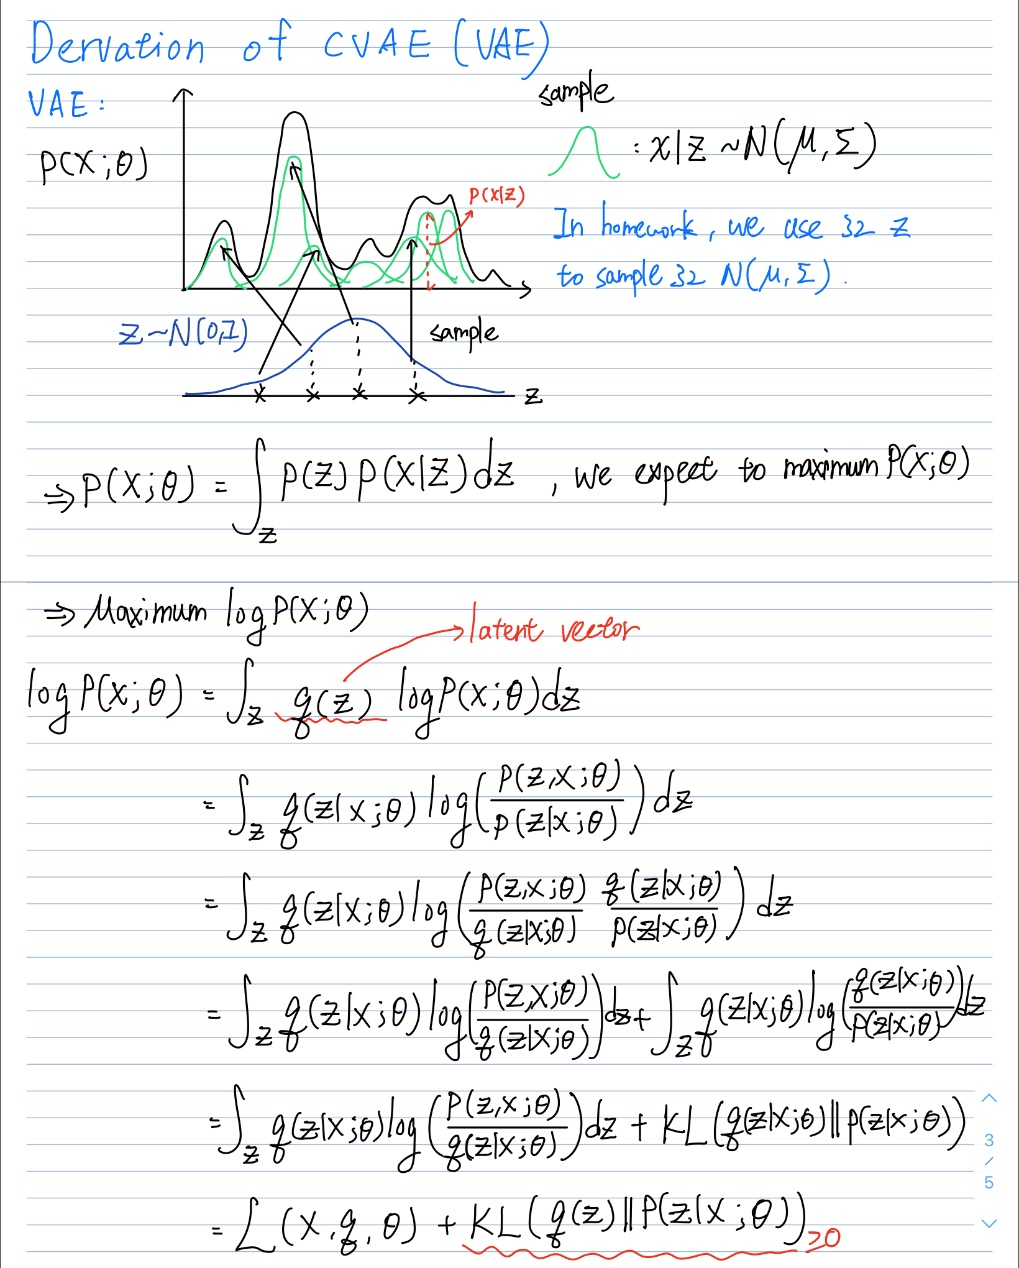 Dervation of CVAE (VAE)
VAE:
sample
P(X;θ)
: x|z ~N(μ,Σ)
P(X|Z)
In homework, we use 32 z
to sample 32 N(μ,Σ).
Z~N(0,I)
sample
z
⇒ P(X;θ) = ∫_z P(Z) P(X|Z) dz , we expect to maximum P(X;θ)
⇒ Maximum log P(X;θ)
latent vector
log P(X;θ) = ∫_z q(z) log P(X;θ) dz
= ∫_z q(z|x;θ) log( P(z,x;θ) / P(z|x;θ) ) dz
= ∫_z q(z|x;θ) log( P(z,x;θ) / q(z|x;θ) q(z|x;θ) / P(z|x;θ) ) dz
= ∫_z q(z|x;θ) log( P(z,x;θ) / q(z|x;θ) ) dz + ∫_z q(z|x;θ) log( q(z|x;θ) / P(z|x;θ) ) dz
= ∫_z q(z|x;θ) log( P(z,x;θ) / q(z|x;θ) ) dz + KL( q(z|x;θ) || P(z|x;θ) )
3
/
5
= L(X,q,θ) + KL( q(z) || P(z|x;θ) ) ≥0